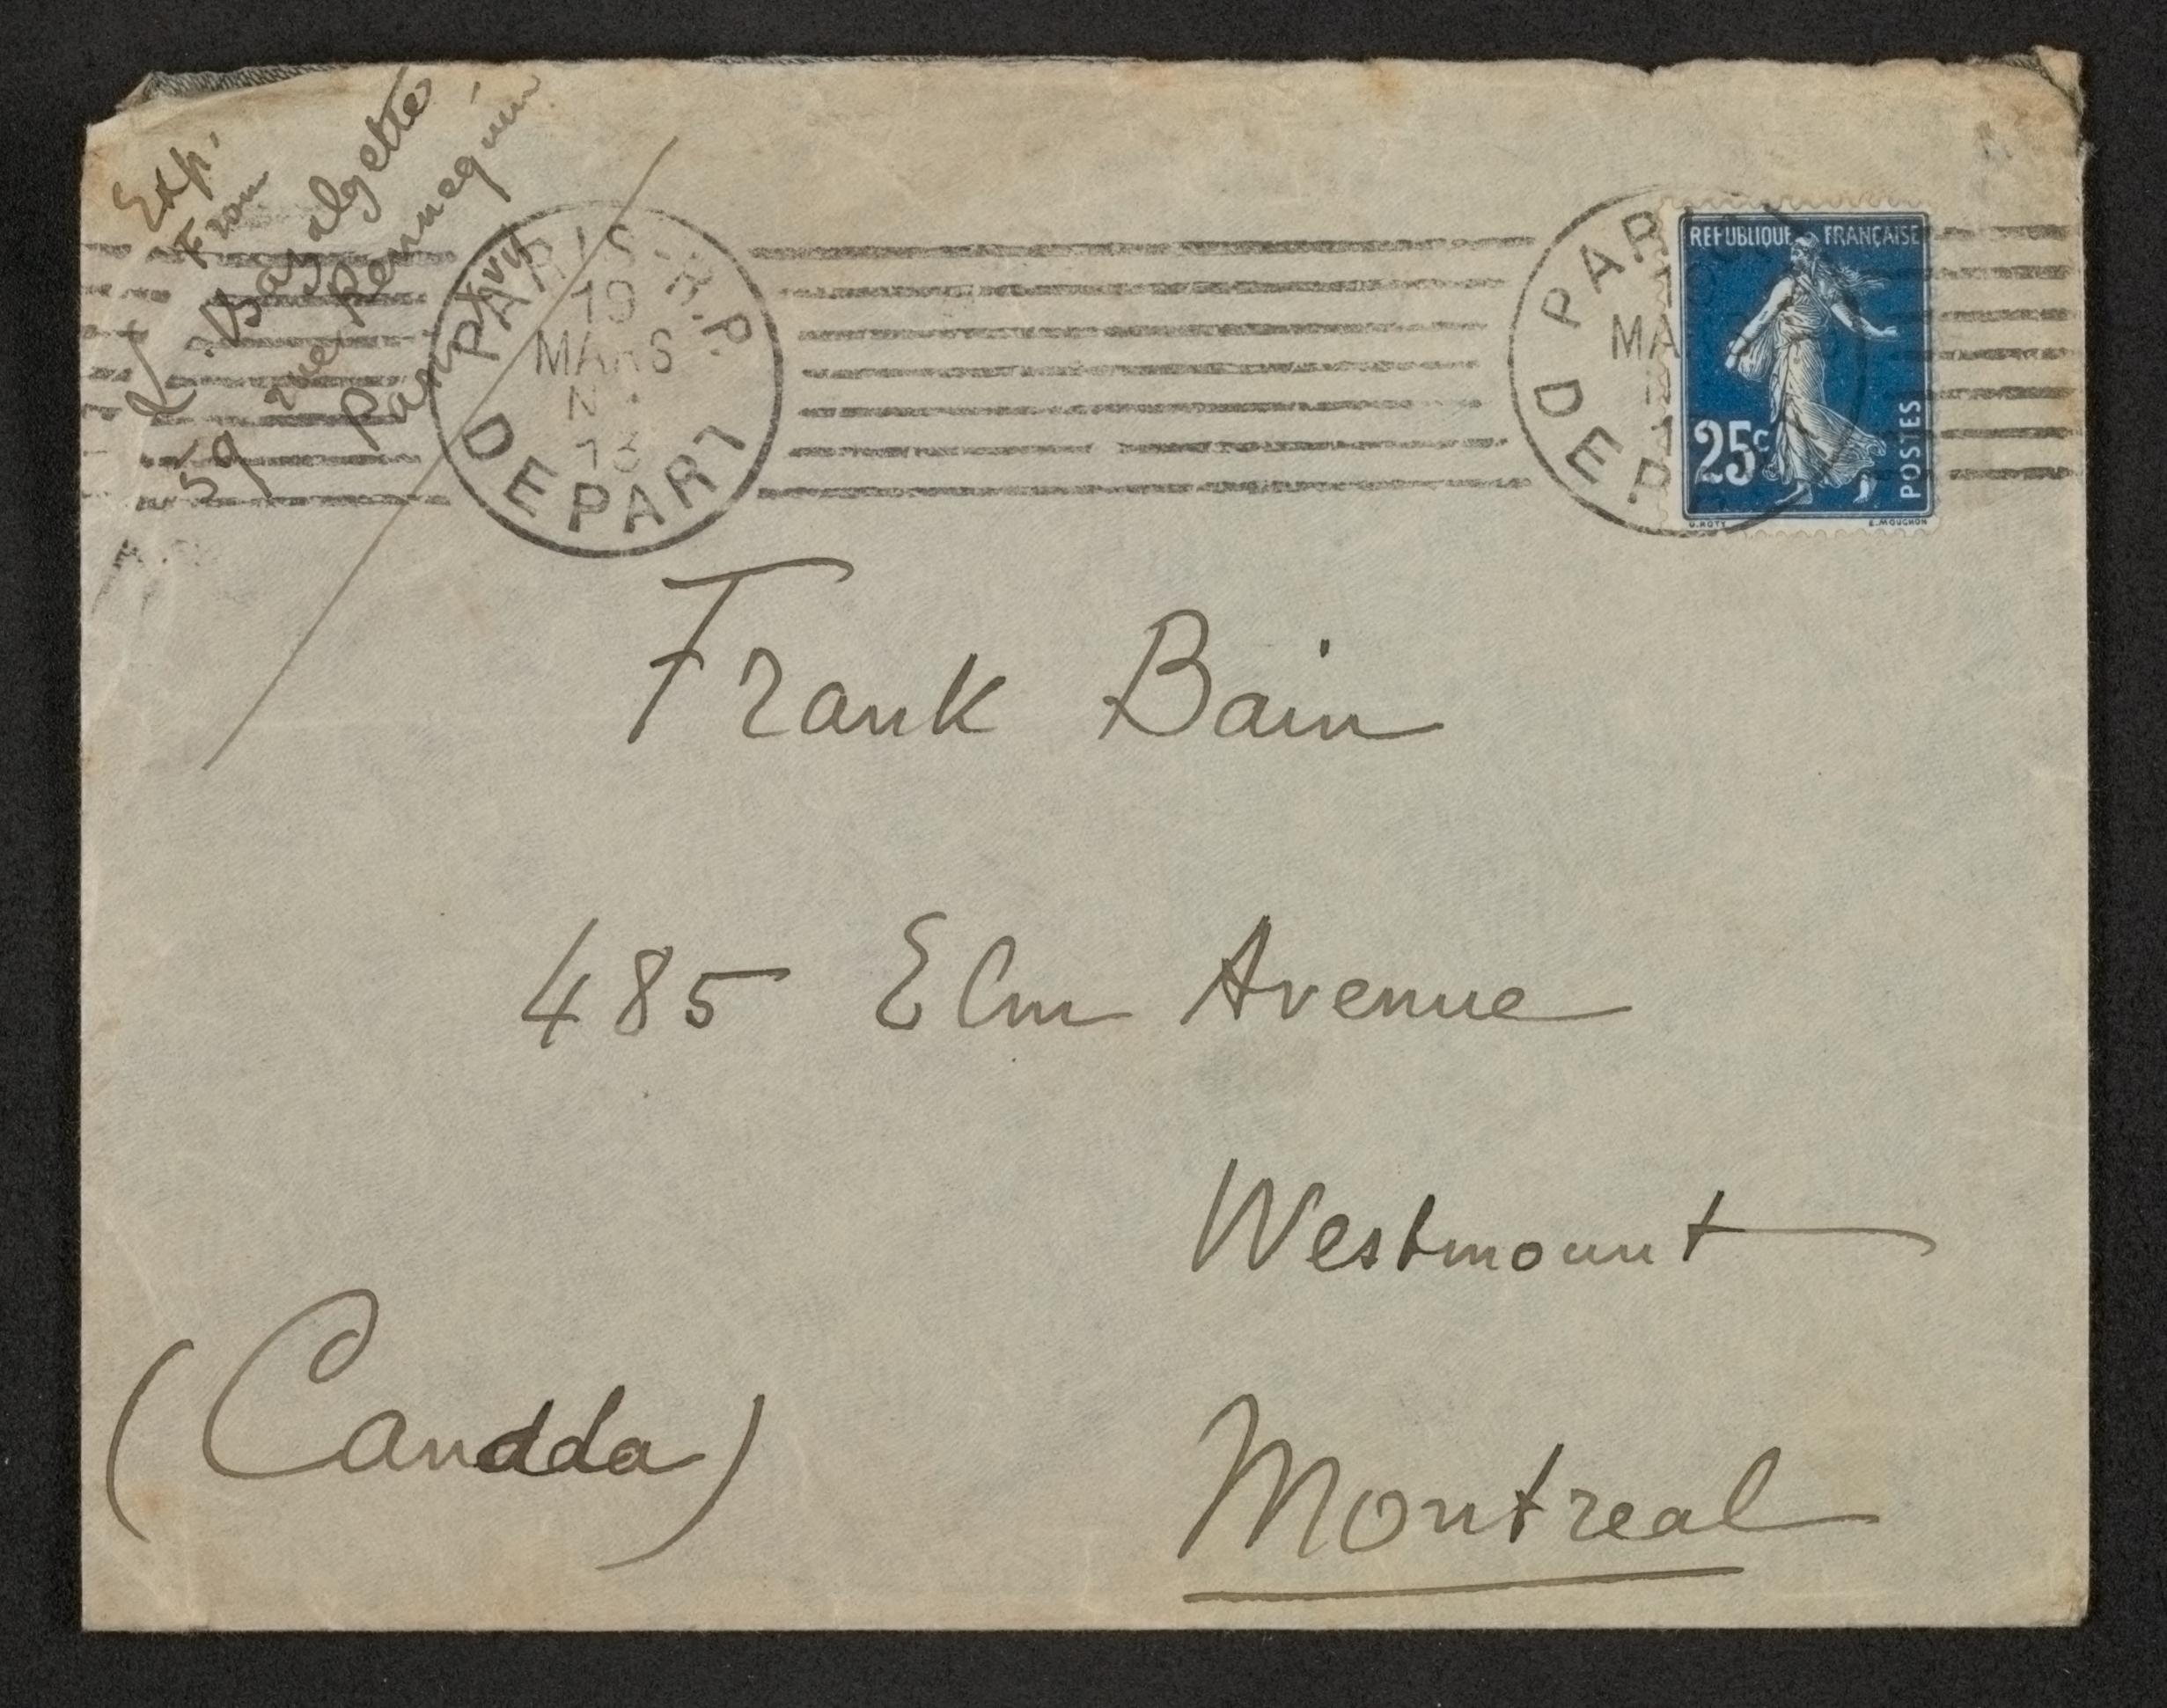 Exp.
From
L. Bazalgette
59 rue Pernequin
Paris XVII
PARIS R.P.
19
MARS
13
DEPART
PAR
MA
DEP
REPUBLIQUE FRANÇAISE
25c
POSTES
O.ROTY
E.MOUCHON
Frank Bain
485 Elm Avenue
Westmount
(Canada)
Montreal